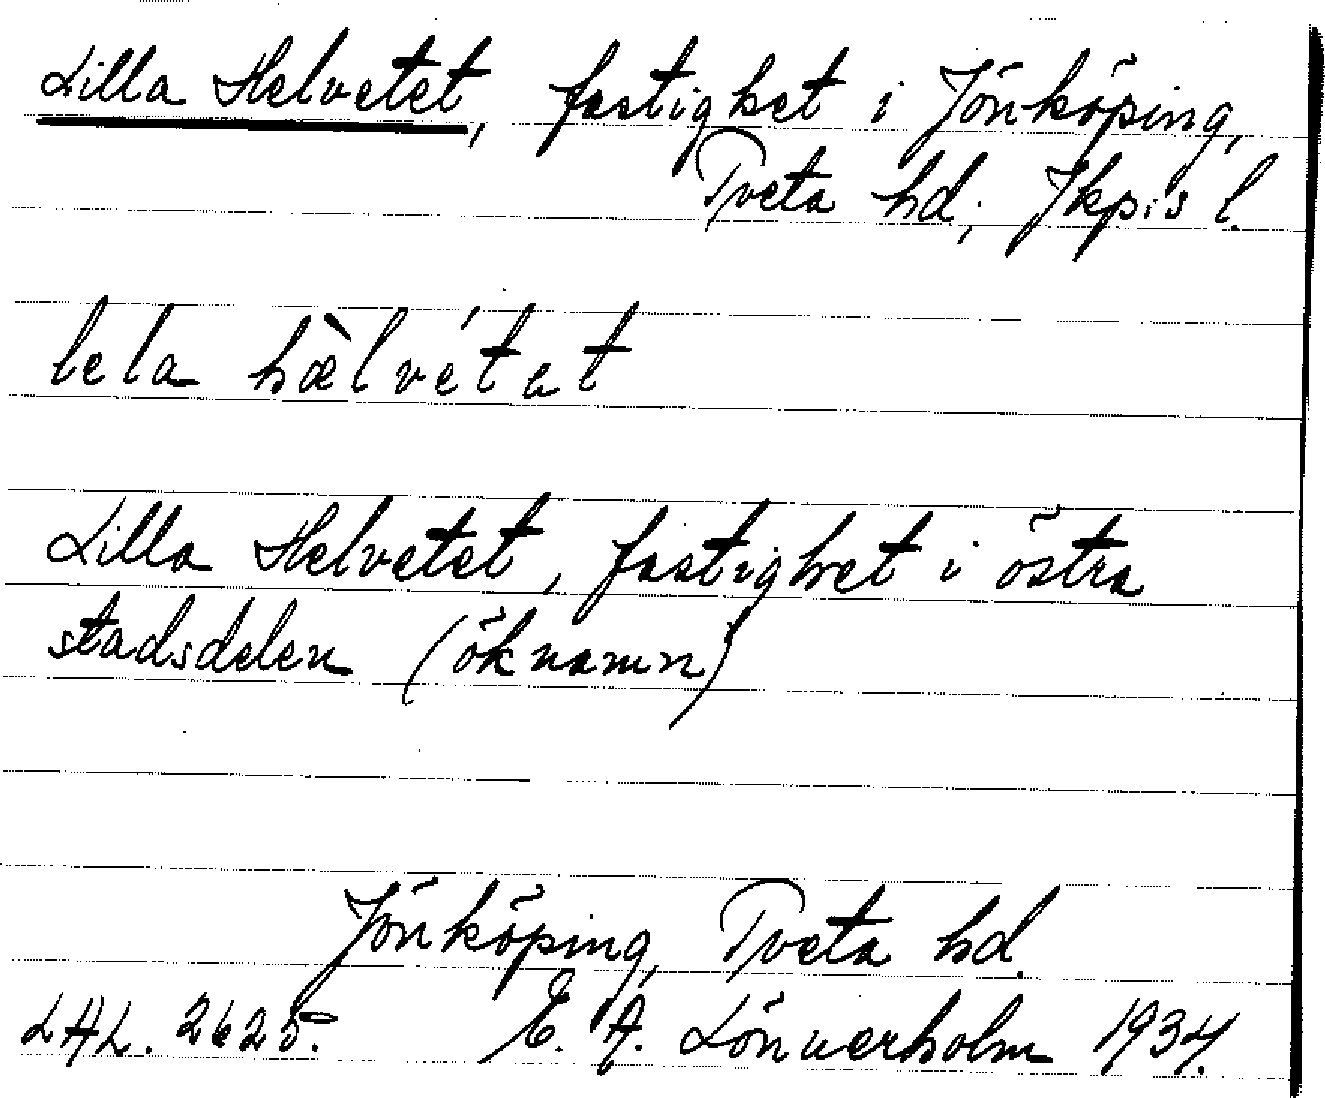 Lilla Helvetet, fastighet i Jönköping,
Tveta hd; Jkpis l.
lela hæ̀lvét at
Lilla Helvetet, fastighet i östra
stadsdelen (öknamn)
Jönköping, Tveta hd.
LAL. 2625. E. A. Lönnerholm 1934.